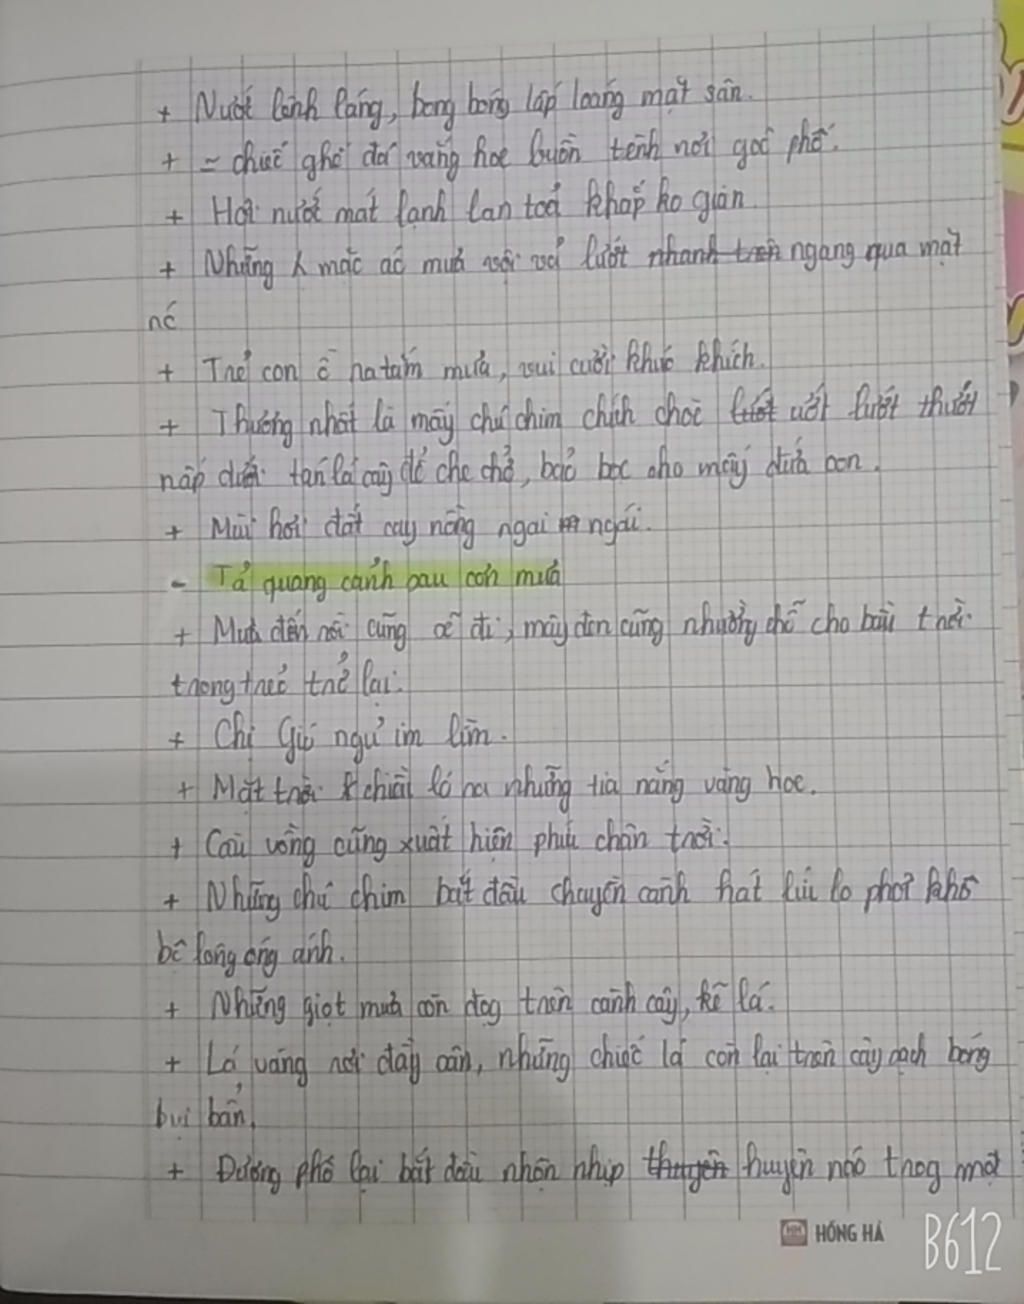 + Nước lênh láng, bong bóng lấp loáng mặt sân.
+ = chiếc ghế đá vắng hoe buồn tênh nơi góc phố.
+ Hơi nước mát lạnh lan toả khắp ko gian
+ Những mặc áo mưa vội vã lướt nhanh trên ngang qua mặt
nó
+ Trẻ con ồ ra tắm mưa, vui cười khúc khích.
+ Thương nhất là mấy chú chim chích choè ướt lướt thướt
nấp dưới tán lá cây để che chở, bao bọc cho mấy đứa con.
+ Mùi hơi đất cay nồng ngai ngái.
- Tả quang cảnh sau cơn mưa
+ Mưa đến rồi cũng sẽ đi, mây đen cũng nhường chỗ cho bầu trời
trong trẻo trở lại.
+ Chị Gió ngủ im lìm.
+ Mặt trời chiếu ló ra những tia nắng vàng hoe.
+ Cầu vồng cũng xuất hiện phía chân trời.
+ Những chú chim bắt đầu chuyền cành hát líu lo phơi khô
bộ lông óng ánh.
+ Những giọt mưa còn đọg trên cành cây, kẽ lá.
+ Lá vàng rơi đầy sân, những chiếc lá còn lại trên cây sạch bóng
bụi bẩn.
+ Đường phố lại bắt đầu nhộn nhịp huyên náo trog một
HỒNG HÀ
B612